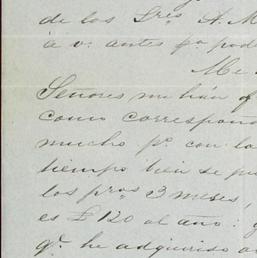 de los Sres A. M
á v. antes pa pod
Me
Señores me han of
como correspond
mucho pr. con la
tiempo bien se pu
los pros 3 meses,
es £120 al año: y
qe. he adquirido